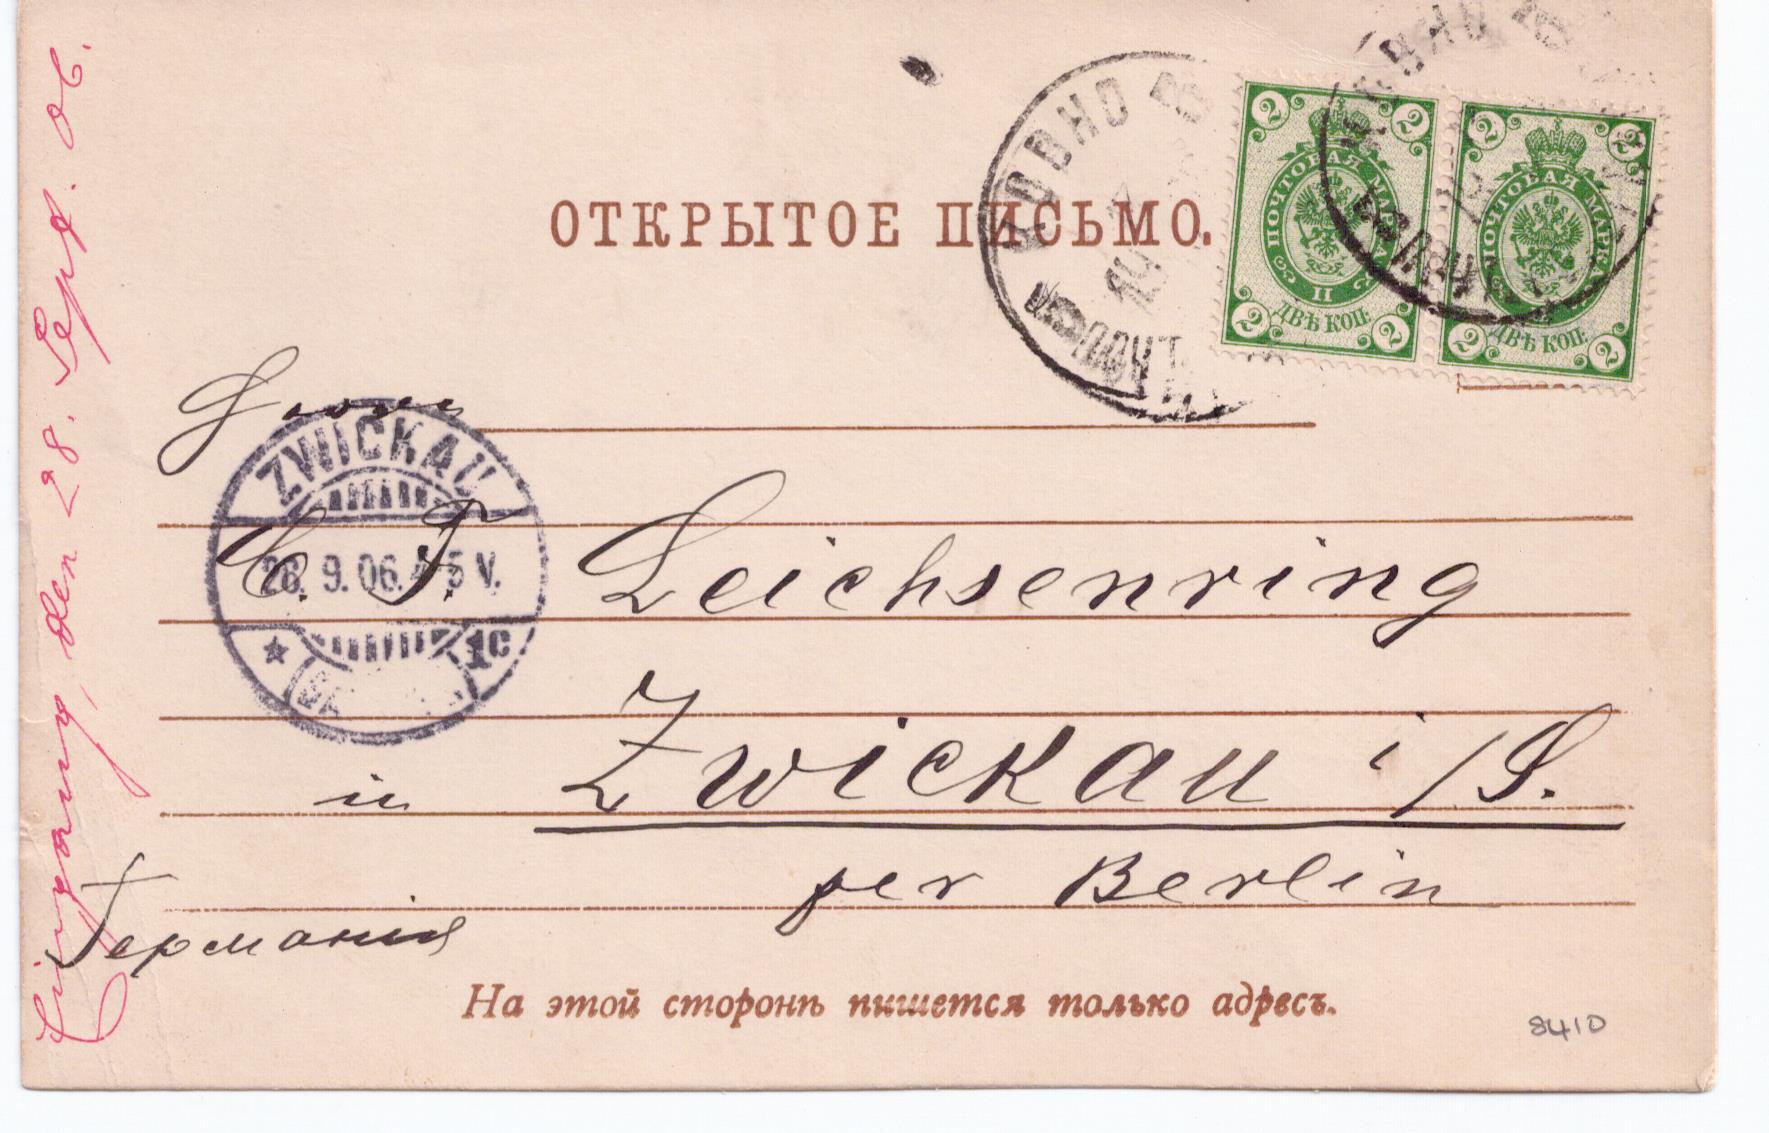 ОТКРЫТОЕ ПИСЬМО.
КОВНО
2 2
ПОЧТОВАЯ МАРКА
II
ДВѢ КОП.
2 2
2 2
ПОЧТОВАЯ МАРКА
ДВѢ КОП.
2 2
Eingang den 28. Sept. 06.
ZWICKAU
28. 9. 06. 4-5 V.
1c
C. F. Leichsenring
in Zwickau i/S.
per Berlin
Германія
На этой сторонѣ пишется только адресъ.
8410